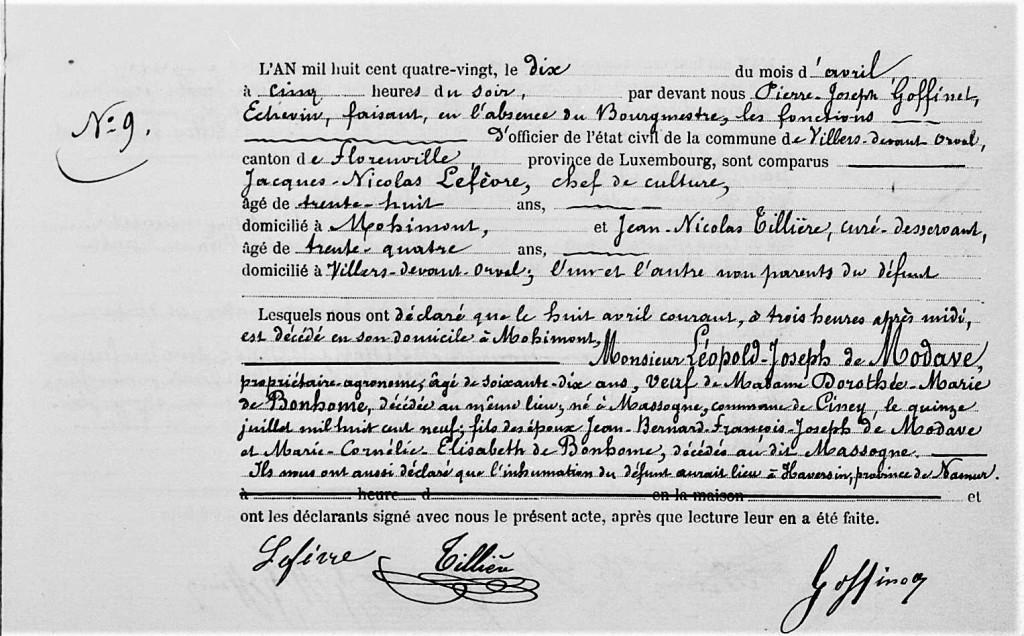 L'AN mil huit cent quatre-vingt, le dix du mois d'avril
à cinq heures du soir, par devant nous Pierre-Joseph Goffinet,
Echevin, faisant, en l'absence du Bourgmestre, les fonctions
N° 9.
D'officier de l'état civil de la commune de Villers-devant-Orval,
canton de Florenville, province de Luxembourg, sont comparus
Jacques-Nicolas Lefèvre, chef de culture,
âgé de trente-huit ans,
domicilié à Mohimont, et Jean-Nicolas Tillière, curé-desservant,
âgé de trente-quatre ans,
domicilié à Villers-devant-Orval; l'un et l'autre non parents du défunt
Lesquels nous ont déclaré que le huit avril courant, à trois heures après midi,
est décédé en son domicile à Mohimont,
Monsieur Léopold-Joseph de Modave,
propriétaire-agronome, âgé de soixante-dix ans, Veuf de Madame Dorothée-Marie
de Bonhome, décédée au même lieu; né à Massogne, commune de Ciney le quinze
juillet mil huit cent neuf; fils des époux Jean-Bernard-François-Joseph de Modave
et Marie-Cornélie-Elisabeth de Bonhome, décédés au dit Massogne.
Ils nous ont aussi déclaré que l'inhumation du défunt aurait lieu à Haversin, province de Namur.
à heure d en la maison et
ont les déclarants signé avec nous le présent acte, après que lecture leur en a été faite.
Lefèvre Tillière Goffinet